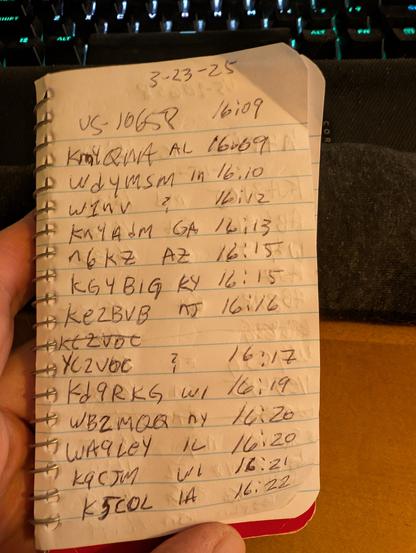 3-23-25
US-10658 16:09
KM4QNA AL 16:09
Wd4MSM In 16:10
W1NV ? 16:12
KN4AdM GA 16:13
n6KZ AZ 16:15
KG4BIG KY 16:15
Ke2BVB NJ 16:16
KC2VOC
YC2VOC ? 16:17
Kd9RKS WI 16:19
WB2MQQ NY 16:20
WA9LEY IL 16:20
K9CJM WI 16:21
K5COL IA 16:22